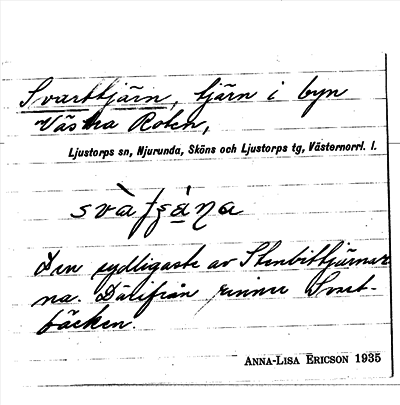 Svarttjärn, tjärn i byn
Västra Roten,
Ljustorps sn, Njurunda, Sköns och Ljustorps tg, Västernorrl. l.
Den sydligaste av Stenbittjärnar
na. Därifrån rinner Svart-
bäcken.
ANNA-LISA ERICSON 1935